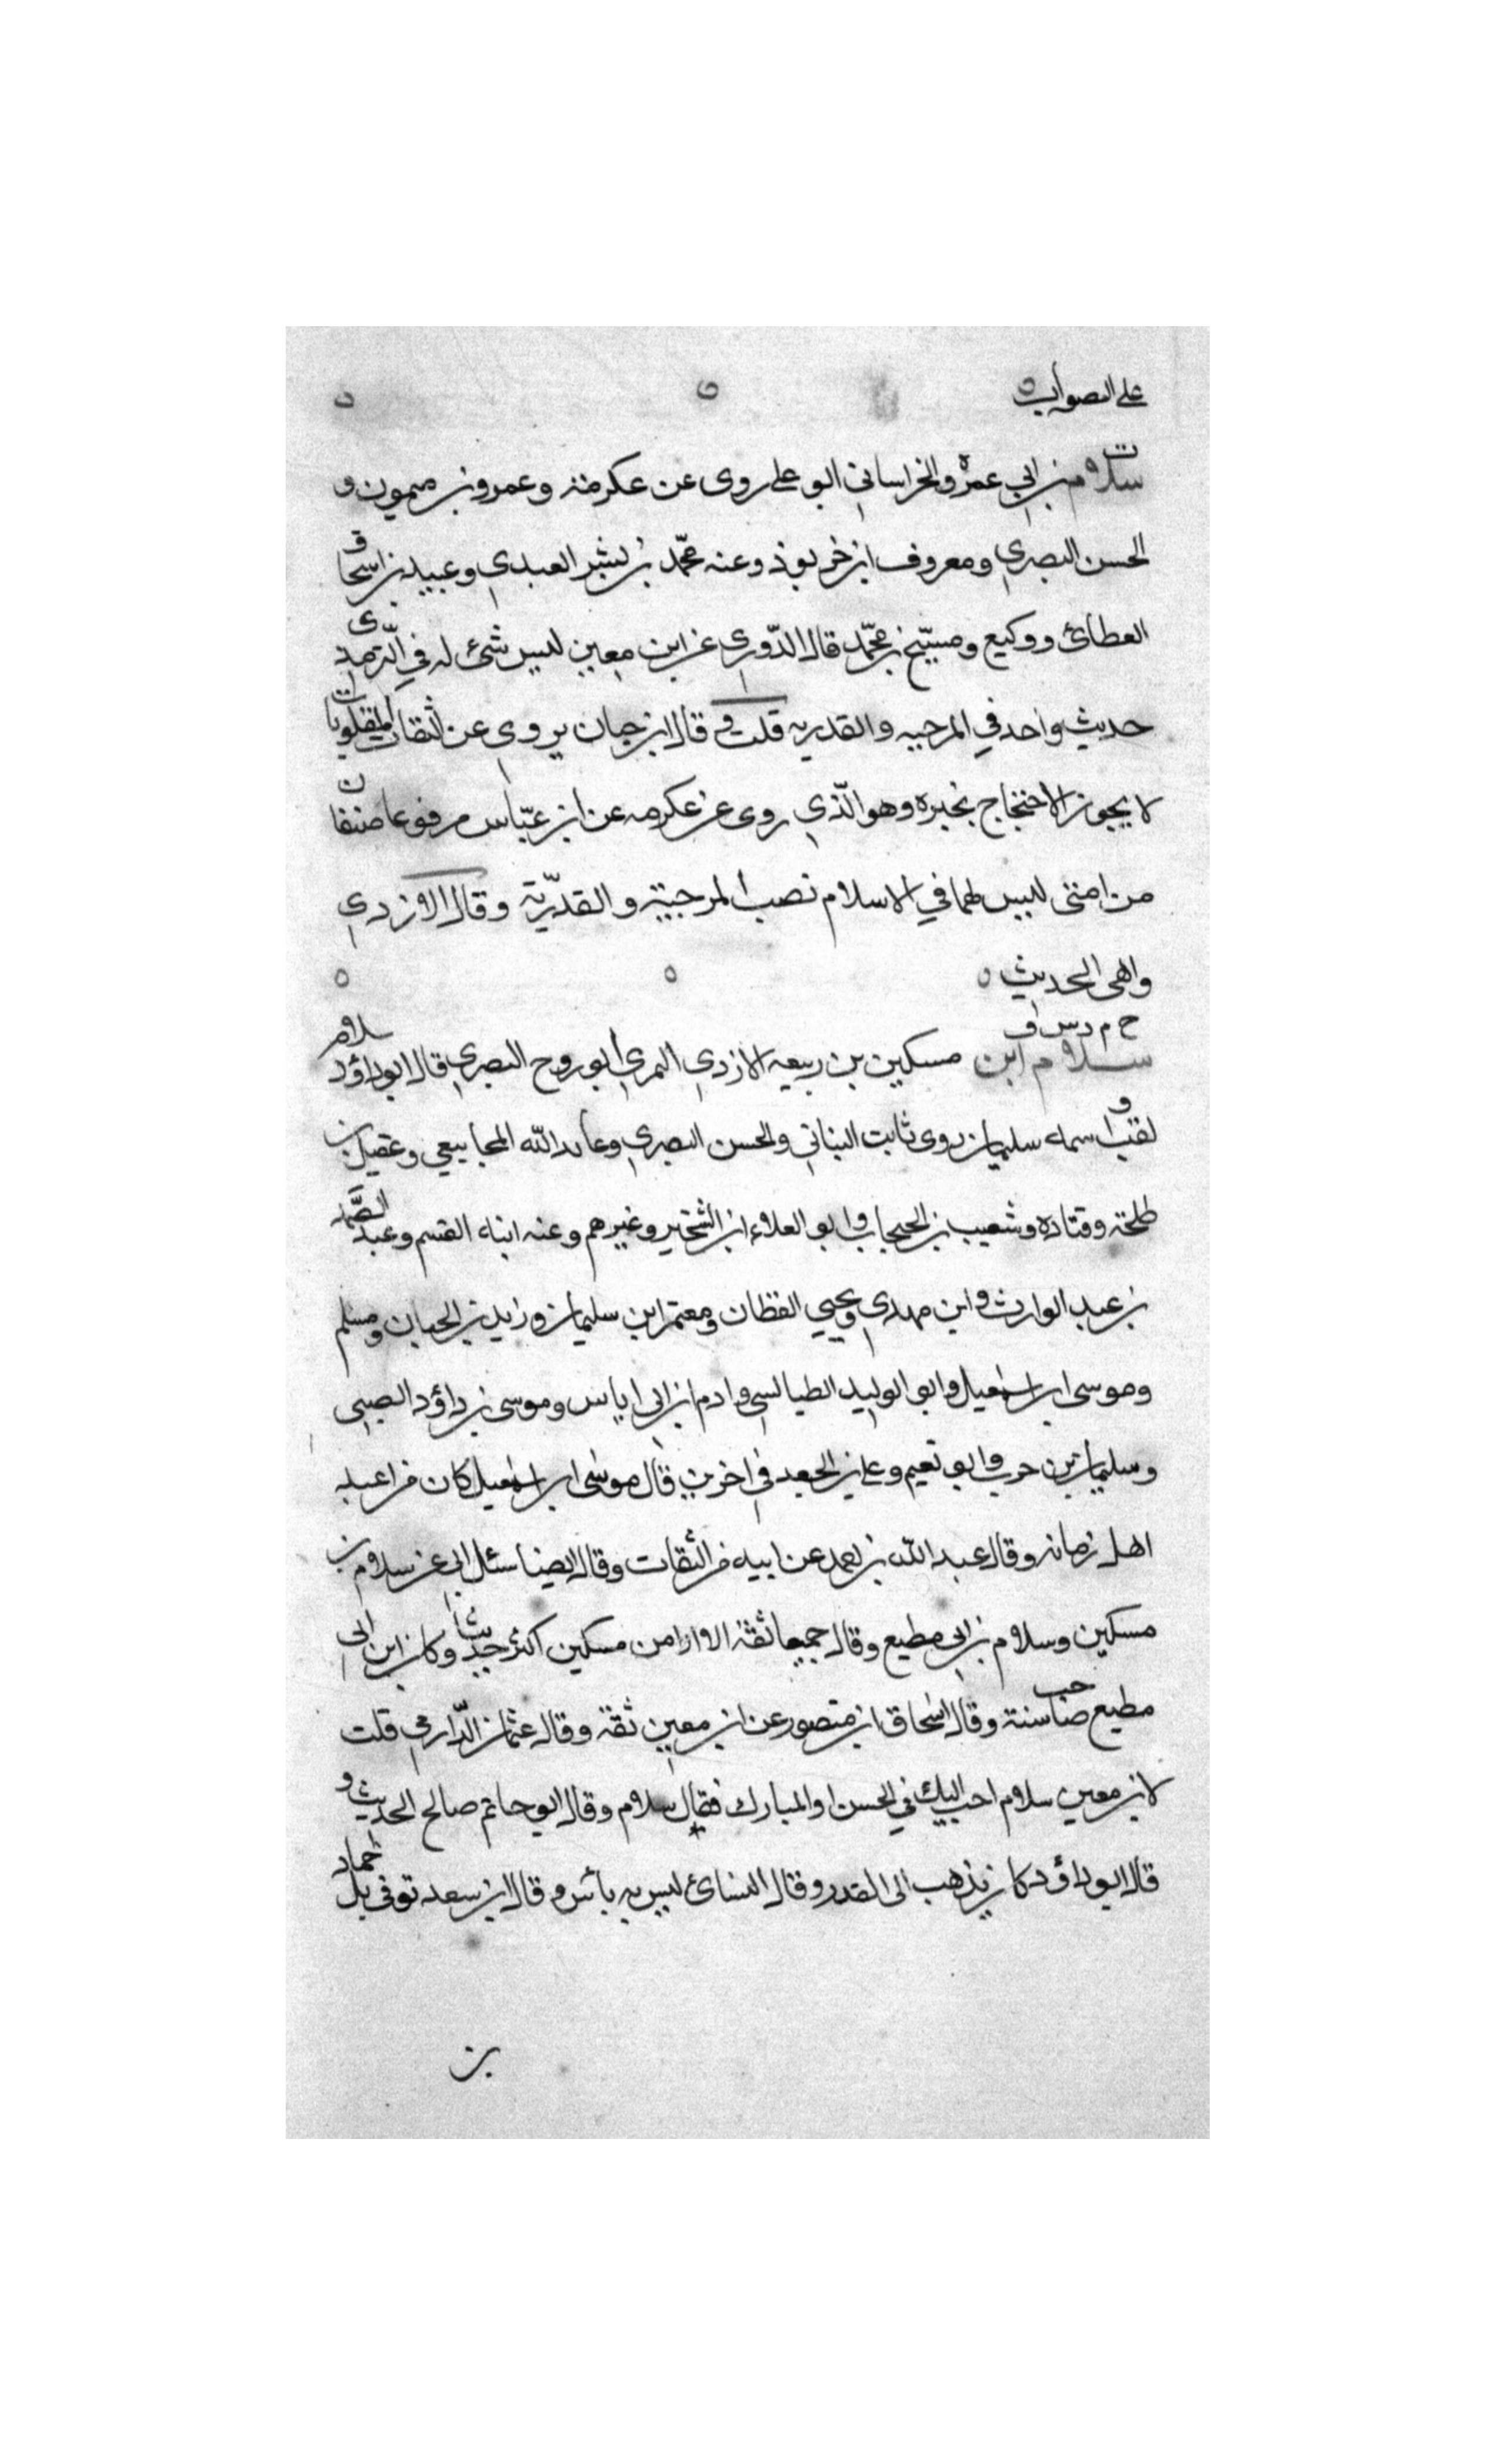 على الصواب
ت
سلام بن ابي عمرة الخراساني ابو علي روى عن عكرمة وعمرو بن ميمون و
الحسن البصري ومعروف ابن خربوذ وعنه محمد بن بشر العبدي وعبيد بن اسحاق
العطائ ووكيع ومسبّح بن محمّد قال الدّوري عن ابن معين ليس شئ له في الترمذي
حديث واحد في المرجيه والقدريه قلت وقال ابن حبان يروي عن الثقات المقلوبات
لا يجوز الاحتجاج بخبره وهو الّذي روى عن عكرمه عن ابن عبّاس مرفوعا صنفان
من امتى ليس لهما في الاسلام نصب المرجيّة والقدّريّة وقال الازدي
واهى الحديث
خ م د س ق
سلام ابن مسكين بن ربيعه الازدي النمري ابو روح البصري قال ابو داؤد سلام
لقب واسمه سليمان روى ثابت البناني والحسن البصري وعايد الله المجاشعي وعقيل بن
طلحة وقتاده وشعيب بن الحبحاب وابو العلاء ابن الشخير وغيرهم وعنه ابناه القسم وعبد الصّمد
بن عبد الوارث وابن مهدي ويحيي القطان ومعتمر ابن سليمان وزيد بن الحباب ومسلم
وموسى ابن اسمعيل وابو الوليد الطيالسي وادم ابن ابي اياس وموسى بن داؤد الضبي
وسليمان بن حرب وابو نعيم وعلي بن الجعد في اخرين قال موسى ابن اسمعيل كان من اعبد
اهل زمانه وقال عبد الله بن احمد عن ابيه من الثقات وقال ايضا سئل ابي عن سلام بن
مسكين وسلام بن ابي مطيع وقال جميعا ثقة الا ان ابن مسكين اكثر حديثا وكان ابن ابي
مطيع صاحب سنة وقال اسحاق ابن منصور عن ابن معين ثقة وقال عثمان الدّارمي قلت
لابن معين سلام احب اليك في الحسن او المبارك فقال سلام وقال ابو حاتم صالح الحديث و
قال ابو داؤد كان يذهب الى القدر وقال النسائ ليس به بأس وقال ابن سعد توفى قبل حماد
بن